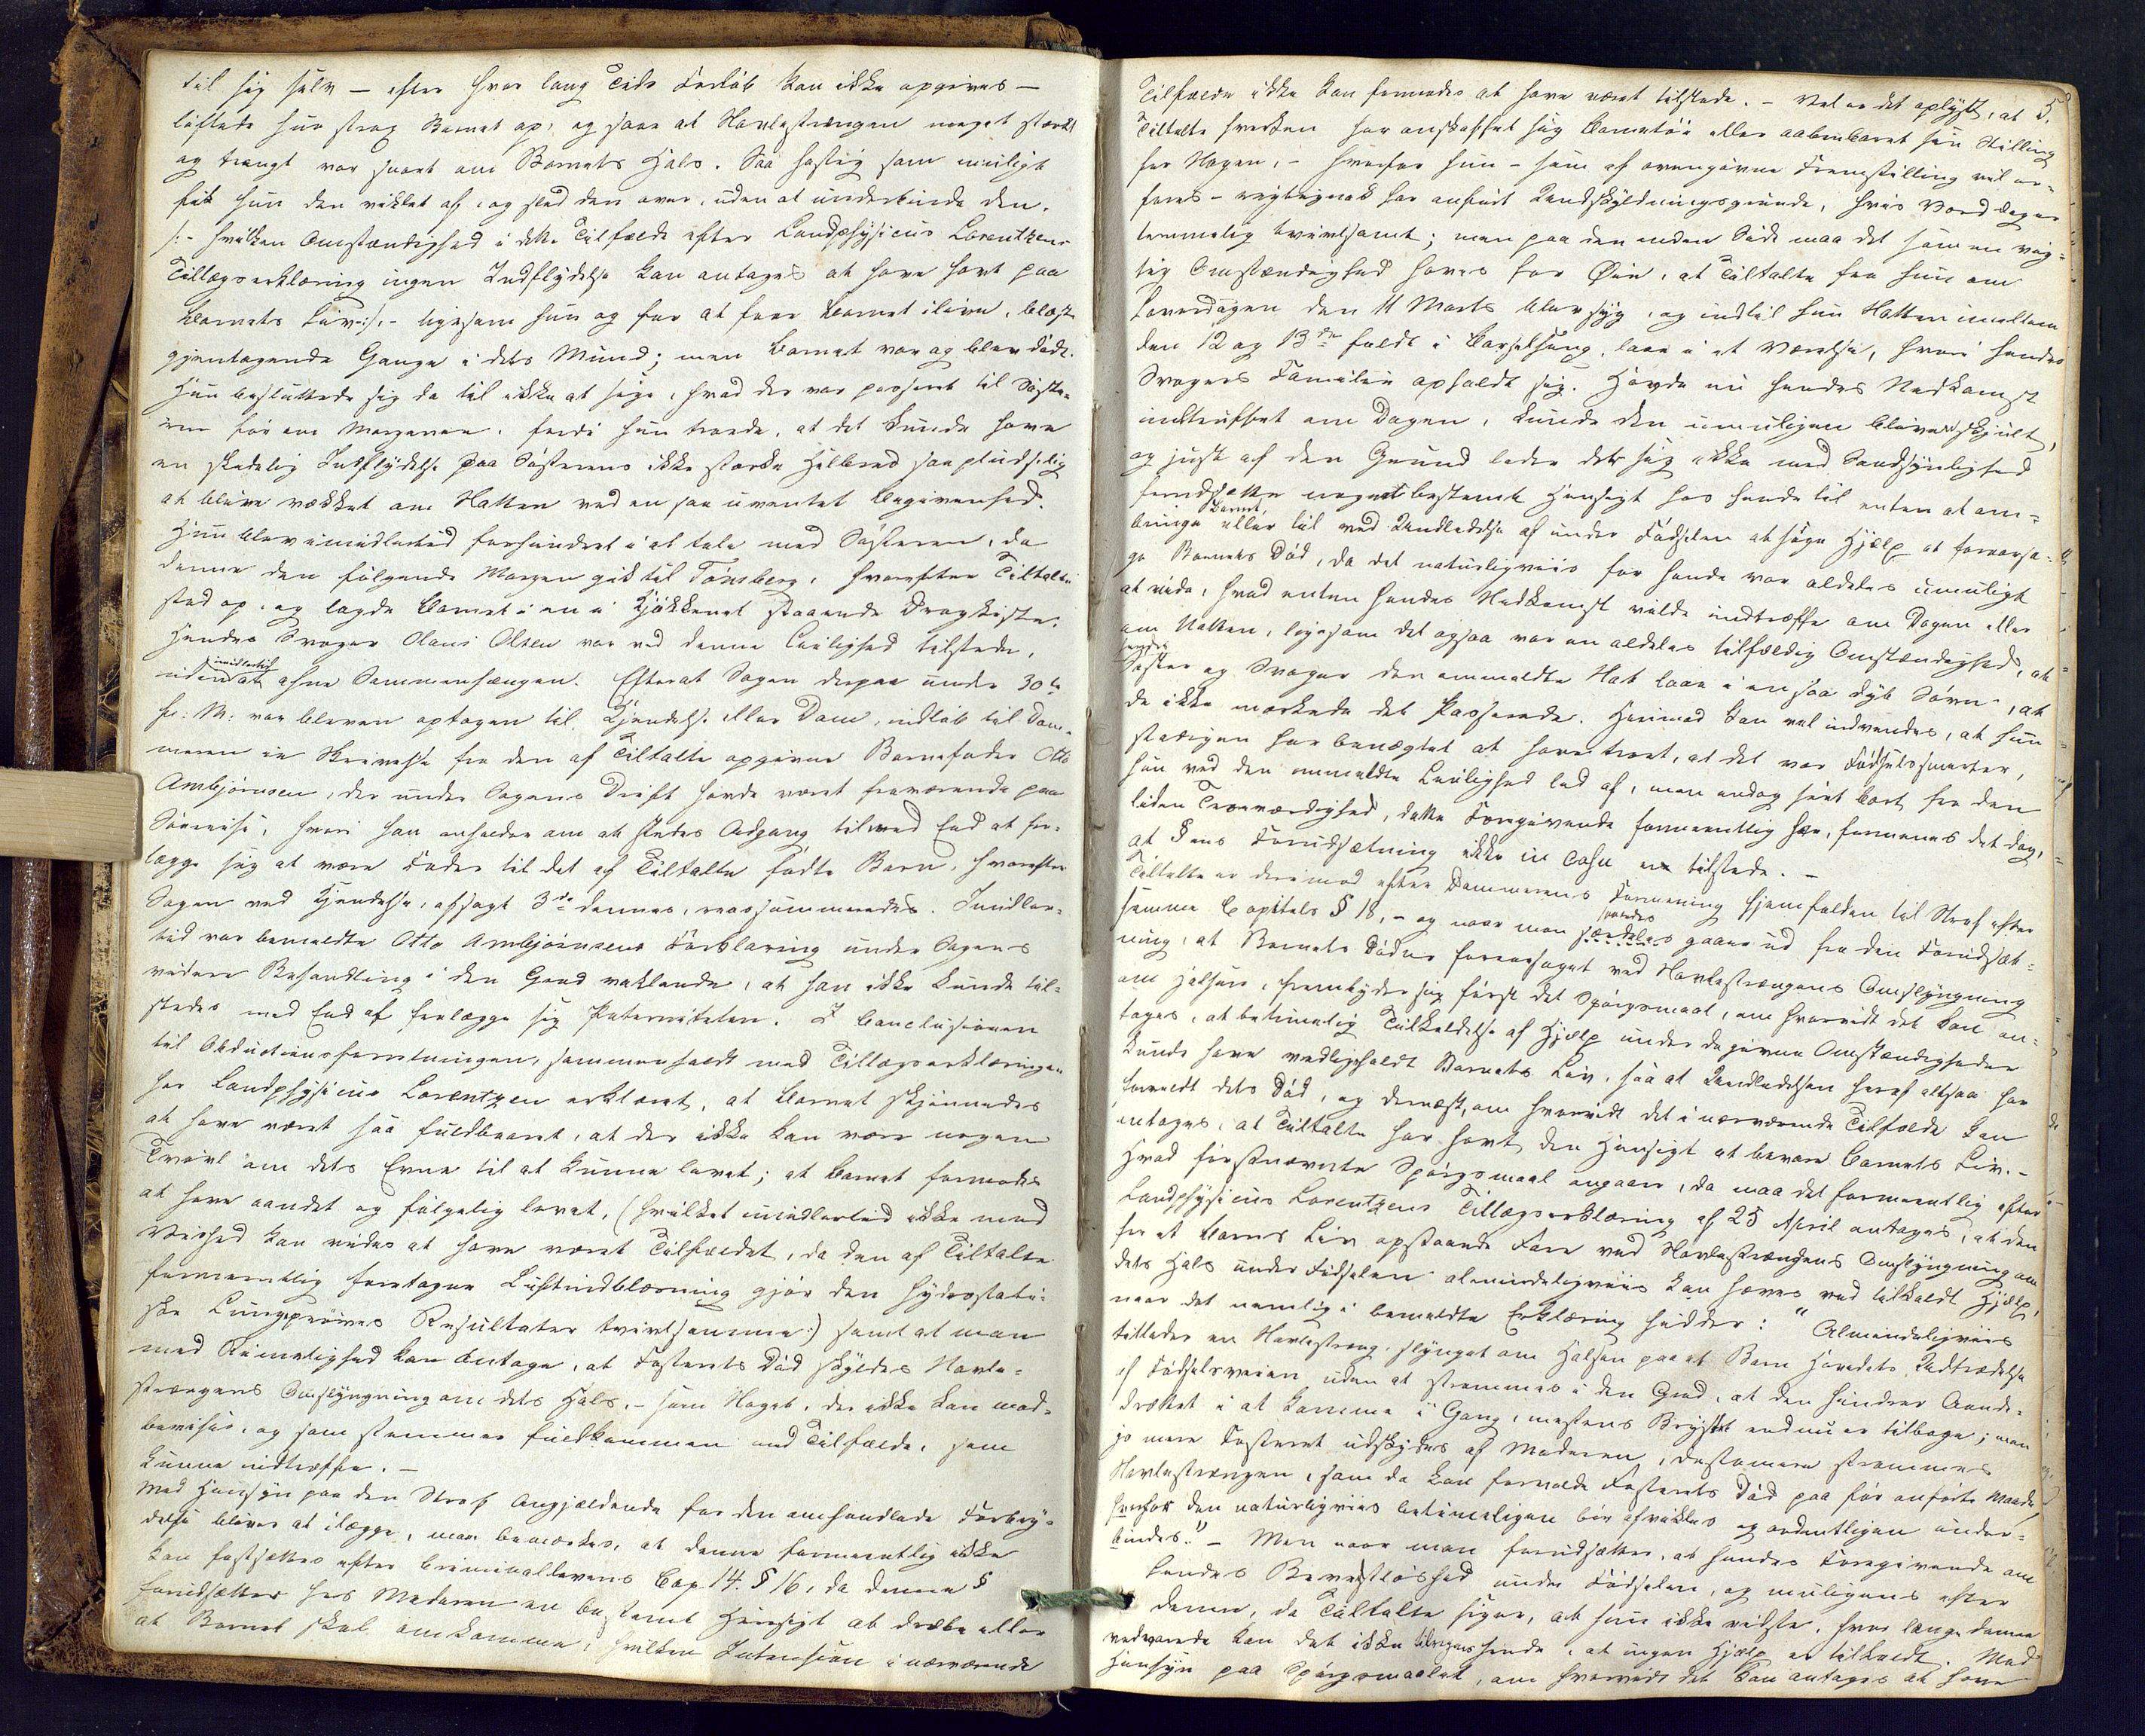 til sig selv – efter hvor lang Tids Forløb kan ikke opgives –
løftede hun strax Barnet op, og saae at Navlestrængen meget stærkt
og trangt var snoet om Barnets Hals. Saa hastig som muligt
fik hun den viklet af, og sled den over, uden at underbinde den.
/:- hvilken Omstændighed i dette Tilfælde efter Landphysicus Lorentzens
Tillægserklæring ingen Indflydelse kan antages at have havt paa
Barnets Liv:/.- ligesom hun og for at faae Barnet ilive, blæste
gjentagende Gange i dets Mund; men Barnet var og blev dødt.
Hun besluttede sig da til ikke at sige, hvad der var passeret til Søste-
ren før om Morgenen, fordi hun troede, at det kunde have
en skadelig Indflydelse paa Søsterens ikke stærke Helbred saa pludselig
at blive vækket om Natten ved en saa uventet Begivenhed.
Hun blev imidlertid forhindret i at tale med Søsteren, da
denne den følgende Morgen gik til Tønsberg, hvorefter Tiltalte
stod op, og lagde Barnet i en i Kjøkkenet staaende Dragkiste.
Hendes Svoger Olaus Olsen var ved denne Leilighed tilstede,
uden imidlertid at ahne Sammenhængen. Efterat Sagen derpaa under 30te
f. M. var bleven optagen til Kjendelse eller Dom, indløb til Dom-
meren en Skrivelse fra den af Tiltalte opgivne Barnefader Otto
Ambjørnsen, der under Sagens Drift havde været fraværende paa
Søreise, hvori han anholder om at stedes Adgang til ved Eed at fra-
lægge sig at være Fader til det af Tiltalte fødte Barn, hvorefter
Sagen ved Kjendelse, afsagt 3die dennes, reassummeredes. Imidler-
tid var bemeldte Otto Ambjørnsens Forklaring under Sagens
videre Behandling i den Grad vaklende, at han ikke kunde til-
stedes med Eed af fralægge sig Paterniteten. I Conclusionen
til Obductionsforretningen, sammenholdt med Tillægserklæringen
har Landphysicus Lorentzen erklæret, at Barnet skjønnedes
at have været saa fuldbaaret, at der ikke kan være nogen
Tvivl om dets Evne til at kunne levet; at Barnet formodes
at have aandet og følgelig levet, (hvilket imidlertid ikke med
Vished kan vides at have været Tilfældet, da den af Tiltalte
formeentlig foretagne Luftindblæsning gjør den hydrostati-
ske Lungeprøves Resultater tvivlsomme:) samt at man
med Rimelighed kan antage, at Fosterets Død skyldes Navle-
strængens Omslyngning om dets Hals, – som Noget, der ikke kan mod-
bevises, og som stemmer fuldkommen med Tilfælde, som
kunne indtræffe. –
Med Hensyn paa den Straf Angjældende for den omhandlede Forbry-
delse bliver at ilægge, maa bemærkes, at denne formeentlig ikke
kan fastsættes efter Criminallovens Cap. 14. § 16, da denne §
forudsætter hos Moderen en bestemt Hensigt at dræbe eller
at Barnet skal omkomme, hvilken Intension i nærværende
5.
Tilfælde ikke kan formodes at have været tilstede. – Vel er det oplyst, at
Tiltalte hverken har anskaffet sig Barnetøi eller aabenbaret sin Stilling
for Nogen, – hvorfor hun – som af ovengivne Fremstilling vil er-
fares – rigtignok har anført Undskyldningsgrunde, hvis Værd dog er
temmelig tvivlsomt; men paa den anden Side maa det som en vig-
tig Omstændighed haves for Øie, at Tiltalte fra hun om
Løverdagen den 11 Marts blev syg, og indtil hun Natten imellem
den 12 og 13de faldt i Barselseng, laae i et Værelse, hvori hendes
Svogers Familie opholdt sig. Havde nu hendes Nedkomst
indtruffet om Dagen, kunde den umuligen bleven skjult,
og just af den Grund lader det sig ikke med Sandsynlighed
forudsætte nogen bestemt Hensigt hos hende til enten at om-
bringe Barnet eller til ved Undladelse af under Fødselen at søge Hjælp at foraarsa-
ge Barnets Død, da det naturligviis for hende var aldeles umuligt
at vide, hvad enten hendes Nedkomst vilde indtræffe om Dagen eller
om Natten, ligesom det ogsaa var en aldeles tilfældig Omstændighed, at
hendes Søster og Svoger den ommeldte Nat laae i en saa dyb Søvn, at
de ikke mærkede det Passerede. Herimod kan vel indvendes, at hun
stedsen har benægtet at have troet, at det var Fødselssmerter,
hun ved den ommeldte Leilighed led af, men endog seet bort fra den
liden Troværdighed, dette Foregivende formeentlig har, formenes det dog,
at §ens Forudsætning ikke in casu er tilstede. –
Tiltalte er derimod efter Dommerens Formening hjemfalden til Straf efter
samme Capitels § 18, – og naar man saaledes gaaer ud fra den Forudsæt-
ning, at Barnets Død er foraarsaget ved Navlestrængens Omslyngning
om Halsen, frembyder sig først det Spørgsmaal, om hvorvidt det kan an-
tages, at betimelig Tilkaldelse af Hjælp under de givne Omstændigheder
kunde have vedligeholdt Barnets Liv, saa at Undladelsen heraf altsaa har
forvoldt dets Død, og dernæst, om hvorvidt det i nærværende Tilfælde kan
antages, at Tiltalte har havt den Hensigt at bevare Barnets Liv. –
Hvad førstnævnte Spørgsmaal angaaer, da maa det formeentlig efter
Landphysicus Lorentzens Tillægserklæring af 25 April antages, at den
for et Barns Liv opstaaende Fare ved Navlestrængens Omslyngning om
dets Hals under Fødselen almindeligviis kan hæves ved tilkaldt Hjælp,
naar det nemlig i bemeldte Erklæring hedder: "Almindeligviis
tillader en Navlestreng, slynget om Halsen paa et Barn Hovedets Udtrædelse
af Fødselsveien uden at strammes i den Grad, at den hindrer Aande-
drættet i at komme i Gang, mestens Brystet endnu er tilbage; men
jo mere Fosteret udskydes af Moderen, destomere strammes
Navlestrængen, som da kan forvolde Fosterets Død paa før anførte Maade,
hvorfor den naturligviis betimeligen bør afvikles og ordentligen under-
bindes." – Men naar man forudsætter, at hendes Foregivende om
hendes Bevidstløshed under Fødselen, og muligens efter
denne, da Tiltalte siger, at hun ikke vidste, hvor længe denne
vedvarede kan det ikke tilregnes hende, at ingen Hjælp er tilkaldt. Med
Hensyn paa Spørgsmaalet, om hvorvidt det kan antages at have